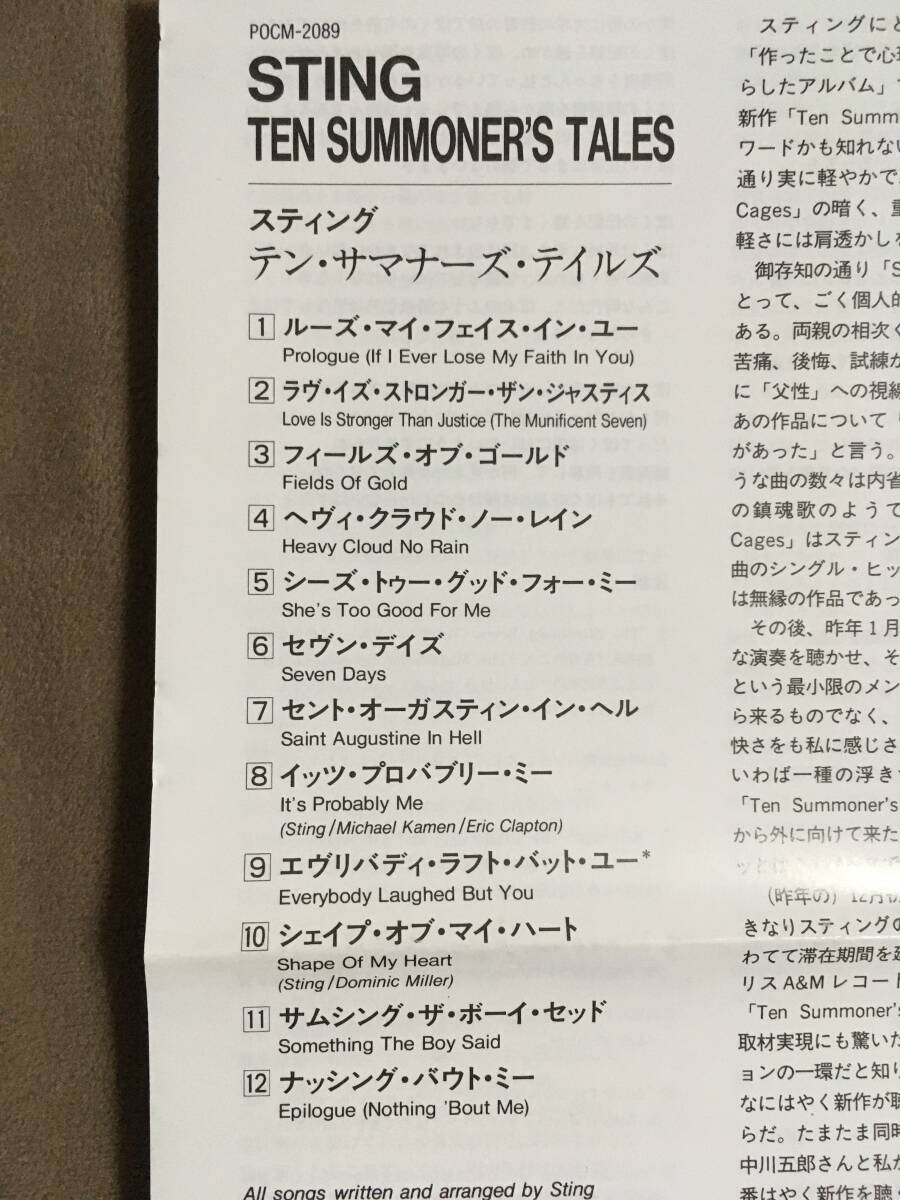 POCM-2089
STING
TEN SUMMONER'S TALES
スティング
テン・サマナーズ・テイルズ
1 ルーズ・マイ・フェイス・イン・ユー
Prologue (If I Ever Lose My Faith In You)
2 ラヴ・イズ・ストロンガー・ザン・ジャスティス
Love Is Stronger Than Justice (The Munificent Seven)
3 フィールズ・オブ・ゴールド
Fields Of Gold
4 ヘヴィ・クラウド・ノー・レイン
Heavy Cloud No Rain
5 シーズ・トゥー・グッド・フォー・ミー
She's Too Good For Me
6 セヴン・デイズ
Seven Days
7 セント・オーガスティン・イン・ヘル
Saint Augustine In Hell
8 イッツ・プロバブリー・ミー
It's Probably Me
(Sting/Michael Kamen/Eric Clapton)
9 エヴリバディ・ラフト・バット・ユー*
Everybody Laughed But You
10 シェイプ・オブ・マイ・ハート
Shape Of My Heart
(Sting/Dominic Miller)
11 サムシング・ザ・ボーイ・セッド
Something The Boy Said
12 ナッシング・バウト・ミー
Epilogue (Nothing 'Bout Me)
All songs written and arranged by Sting
スティングにと
「作ったことで心理
らしたアルバム」で
新作「Ten Summ
ワードかも知れない
通り実に軽やかで
Cages」の暗く、重
軽さには肩透かしを
御存知の通り「S
とって、ごく個人的
ある。両親の相次ぐ
苦痛、後悔、試練が
に「父性」への視線
あの作品について「
があった」と言う。
うな曲の数々は内省
の鎮魂歌のようて
Cages」はスティン
曲のシングル・ヒッ
は無縁の作品であっ
その後、昨年1月
な演奏を聴かせ、そ
という最小限のメン
ら来るものでなく、
快さをも私に感じさ
いわば一種の浮き
「Ten Summoner's
から外に向けて来た
(昨年の) 12月初
きなりスティングの
わてて滞在期間を延
リスA&Mレコート
「Ten Summoner's
取材実現にも驚いた
ョンの一環だと知り
なにはやく新作が聴
らだ。たまたま同時
中川五郎さんと私か
番はやく新作を聴く